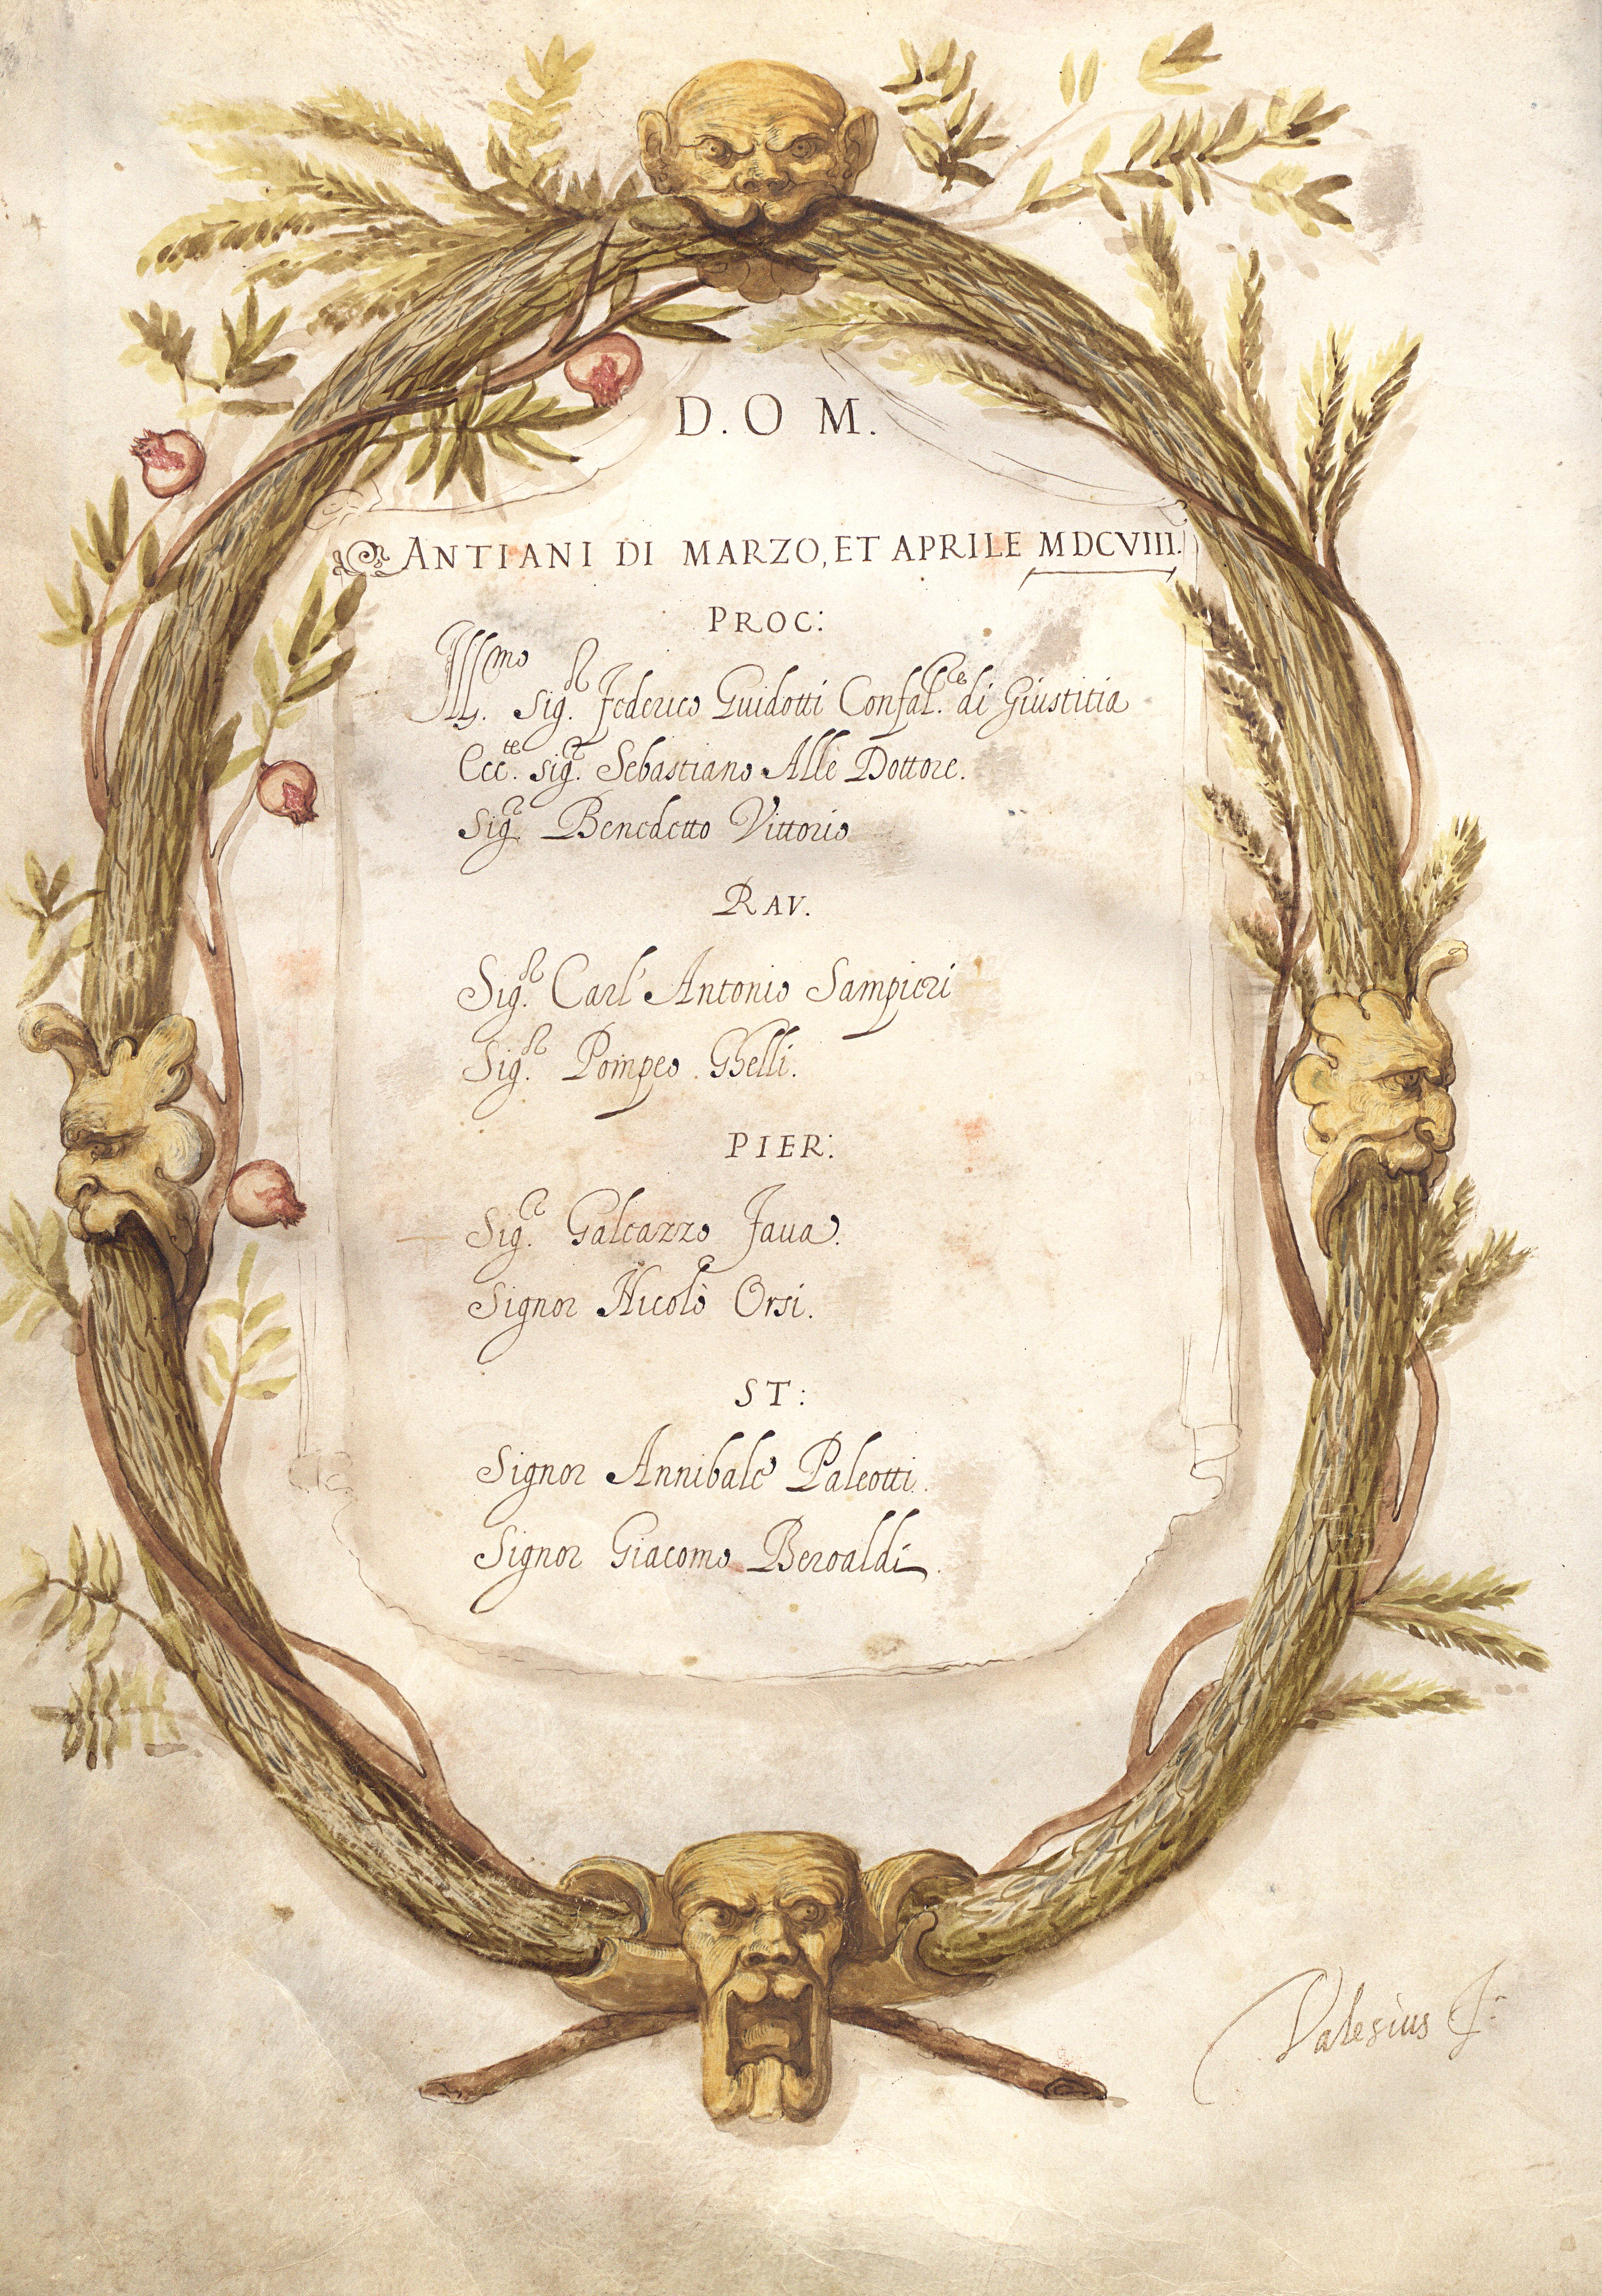 D. O M.
ANTIANI DI MARZO, ET APRILE MDCVIII.
PROC:
Ill.mo sig.r Federico Guidotti Confal.re di Giustitia
Ecc.te sig.r Sebastiano Allè Dottore.
Sig.r Benedetto Vittorio
RAV.
Sig.r Carl' Antonio Sampieri
Sig.r Pompeo Ghelli.
PIER:
Sig.r Galeazzo Faua.
Signor Nicolò Orsi.
ST:
Signor Annibale Paleotti.
Signor Giacomo Beroaldi.
Valesius F.